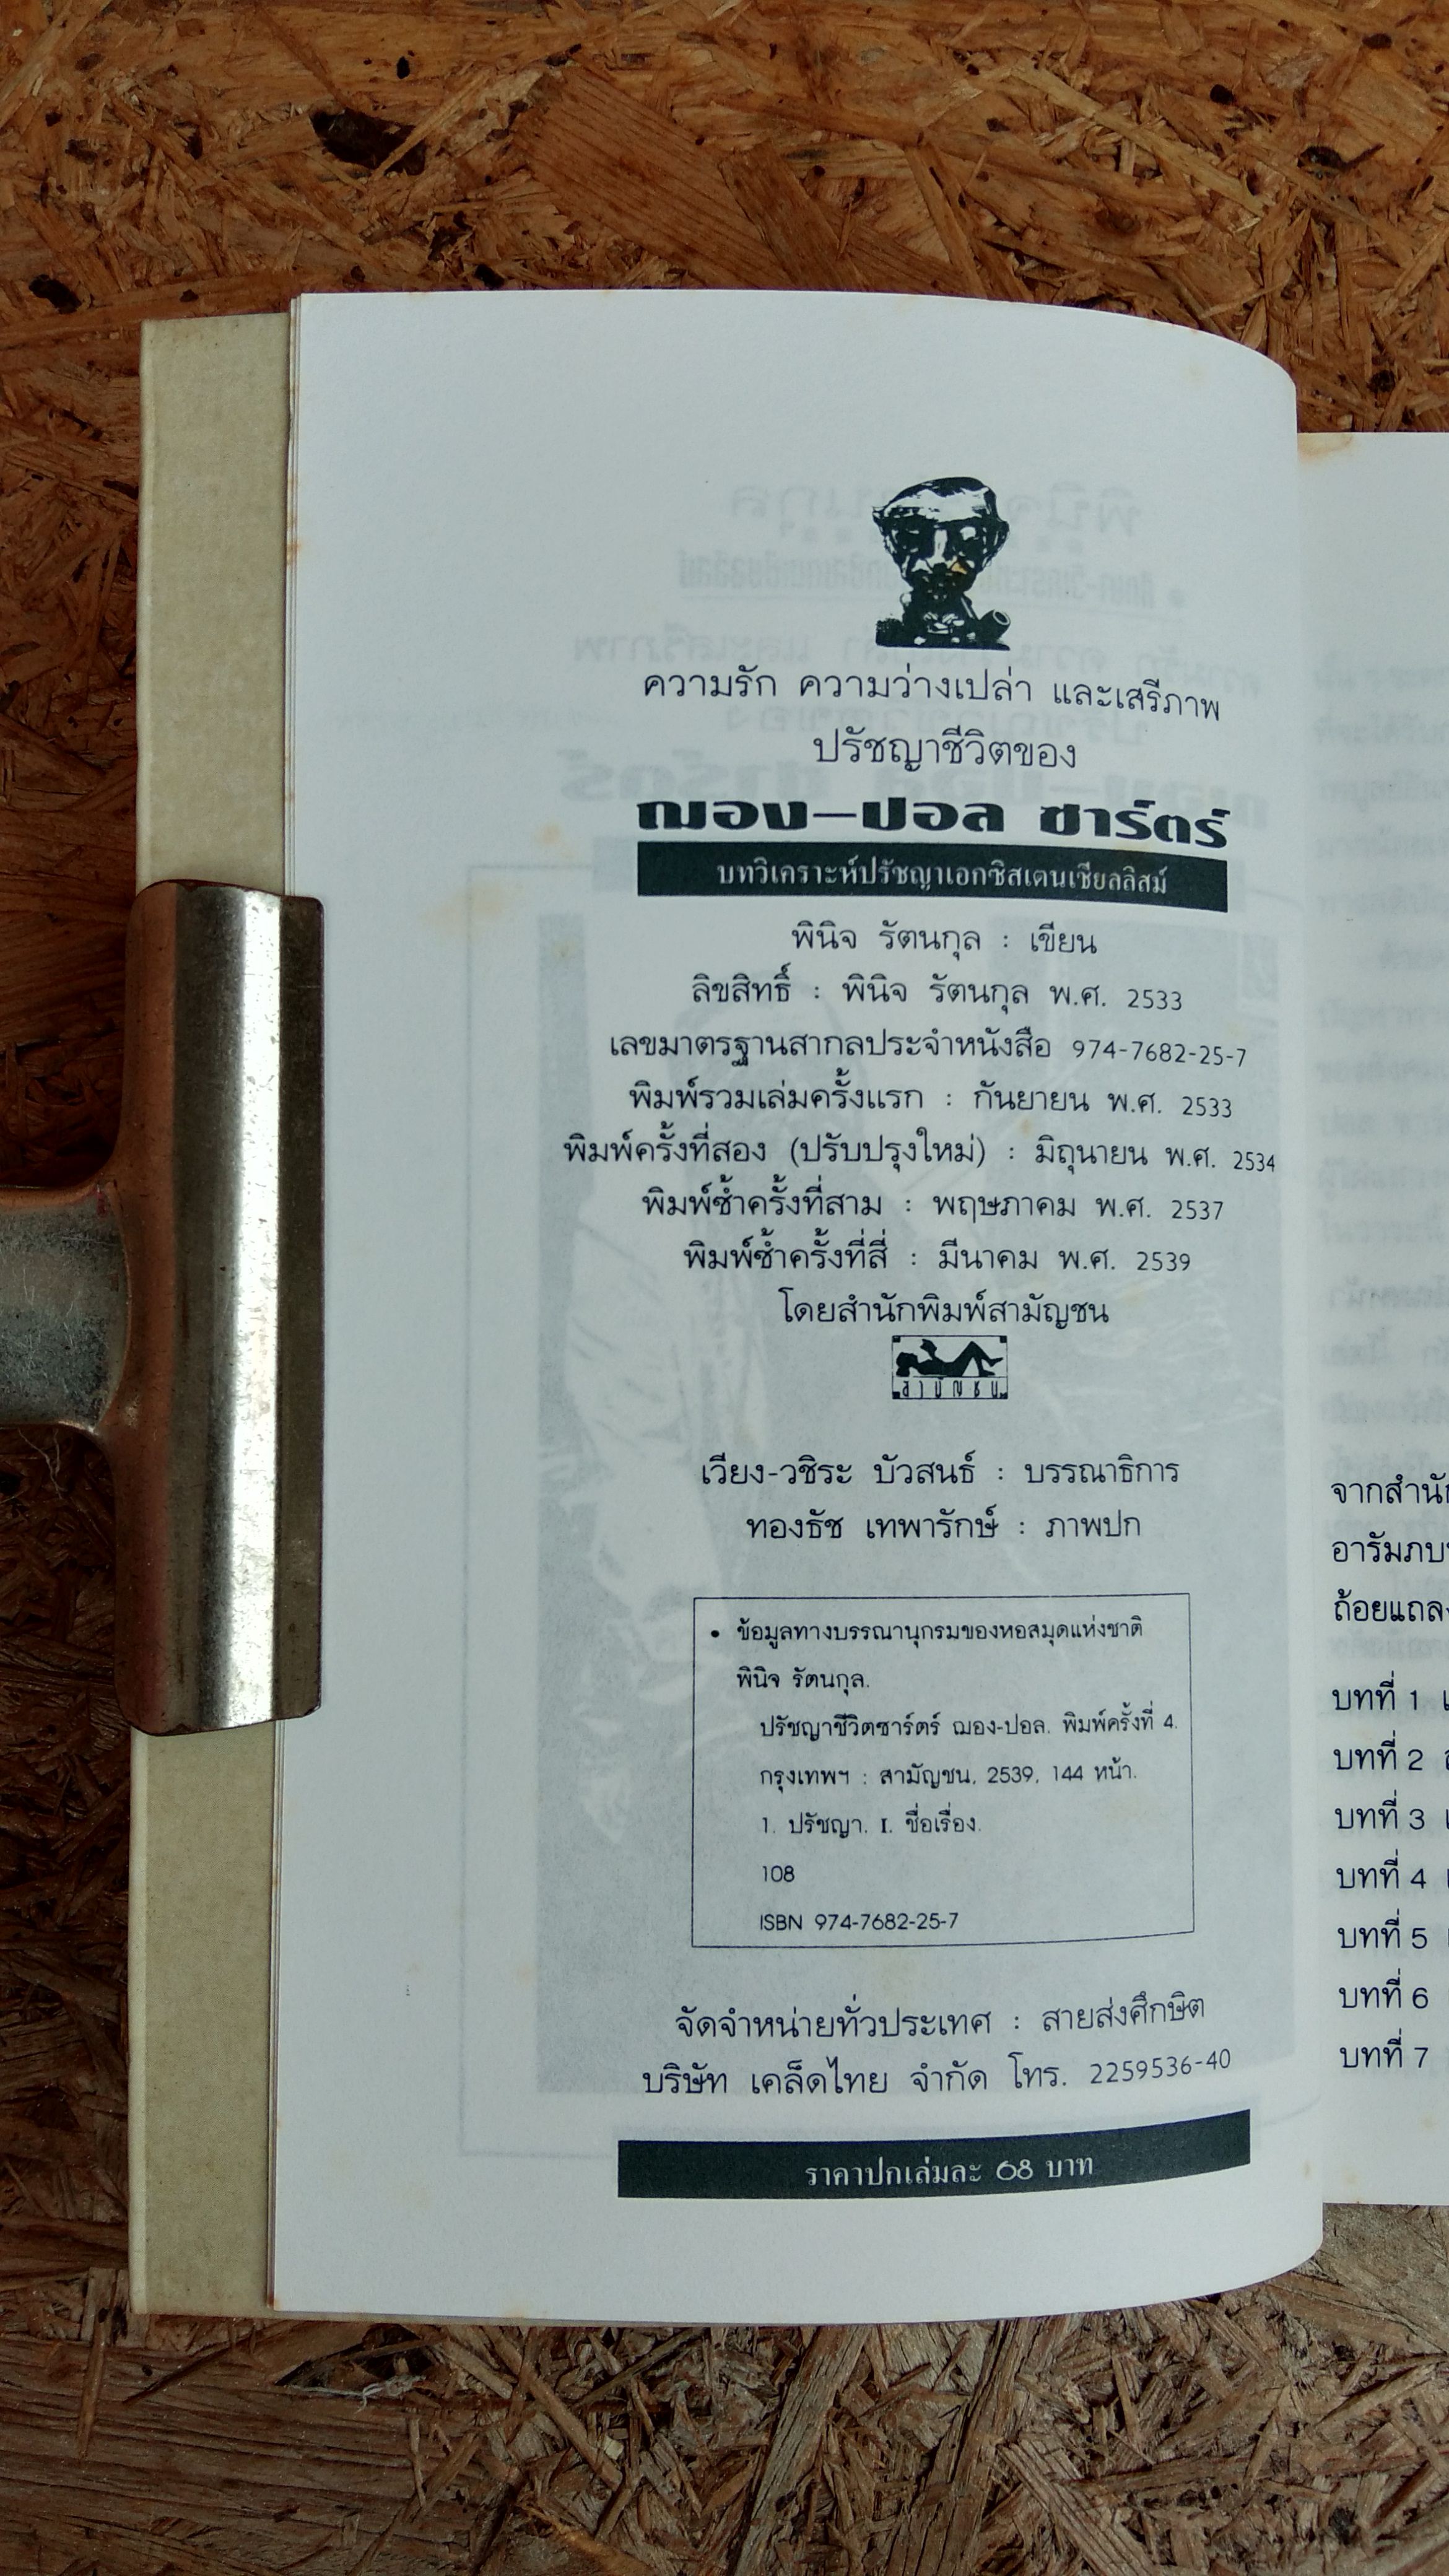 ความรัก ความว่างเปล่า และเสรีภาพ
ปรัชญาชีวิตของ
ฌอง-ปอล ซาร์ตร์
บทวิเคราะห์ปรัชญาเอกซิสเตนเชียลลิสม์
พินิจ รัตนกุล : เขียน
ลิขสิทธิ์ : พินิจ รัตนกุล พ.ศ. 2533
เลขมาตรฐานสากลประจำหนังสือ 974-7682-25-7
พิมพ์รวมเล่มครั้งแรก : กันยายน พ.ศ. 2533
พิมพ์ครั้งที่สอง (ปรับปรุงใหม่) : มิถุนายน พ.ศ. 2534
พิมพ์ซ้ำครั้งที่สาม : พฤษภาคม พ.ศ. 2537
พิมพ์ซ้ำครั้งที่สี่ : มีนาคม พ.ศ. 2539
โดยสำนักพิมพ์สามัญชน
สามัญชน
เวียง-วชิระ บัวสนธ์ : บรรณาธิการ
ทองธัช เทพารักษ์ : ภาพปก
• ข้อมูลทางบรรณานุกรมของหอสมุดแห่งชาติ
พินิจ รัตนกุล.
ปรัชญาชีวิตซาร์ตร์ ฌอง-ปอล. พิมพ์ครั้งที่ 4.
กรุงเทพฯ : สามัญชน, 2539, 144 หน้า.
1. ปรัชญา. I. ชื่อเรื่อง.
108
ISBN 974-7682-25-7
จัดจำหน่ายทั่วประเทศ : สายส่งศึกษิต
บริษัท เคล็ดไทย จำกัด โทร. 2259536-40
ราคาปกเล่มละ 68 บาท
จากสำนัก
อารัมภบ
ถ้อยแถลง
บทที่ 1
บทที่ 2
บทที่ 3
บทที่ 4
บทที่ 5
บทที่ 6
บทที่ 7